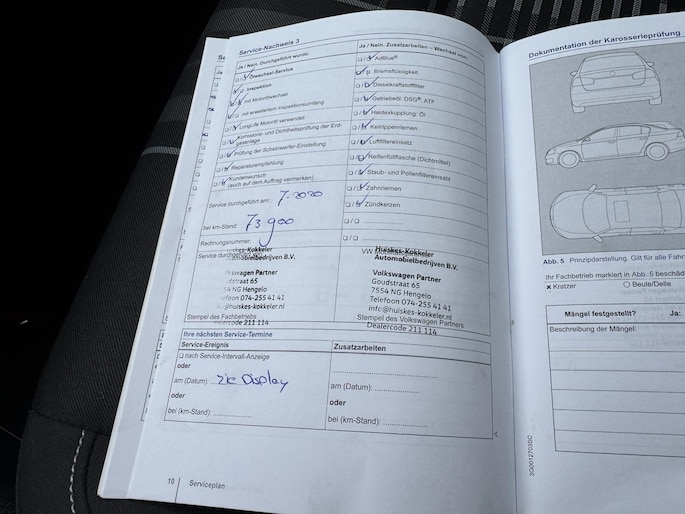 Service-Nachweis 3
Ja / Nein. Durchgeführt wurde:
❏ / ❏ Ölwechsel-Service
❏ / ❏ Inspektion
❏ / ❏ mit Motorölwechsel
❏ / ❏ mit erweitertem Inspektionsumfang
❏ / ❏ LongLife Motoröl verwendet
❏ / ❏ Korrosions- und Dichtheitsprüfung der Erd-
gasanlage
❏ / ❏ Prüfung der Scheinwerfer-Einstellung
❏ / ❏ Reparaturempfehlung
❏ / ❏ Kundenwunsch
(auch auf dem Auftrag vermerken)
Service durchgeführt am: 7-2020
bei km-Stand: 73900
Rechnungsnummer:
Service durchgeführt
Huiskes-Kokkeler
Automobielbedrijven B.V.
Volkswagen Partner
Goudstraat 65
7554 NG Hengelo
Telefoon 074-255 41 41
info@huiskes-kokkeler.nl
Stempel des Fachbetriebs
Dealercode 211 114
Ja / Nein. Zusatzarbeiten – Wechsel von:
❏ / ❏ AdBlue®
❏ / ❏ Bremsflüssigkeit
❏ / ❏ Dieselkraftstofffilter
❏ / ❏ Getriebeöl: DSG®, ATF
❏ / ❏ Haldexkupplung: Öl
❏ / ❏ Keilrippenriemen
❏ / ❏ Luftfiltereinsatz
❏ / ❏ Reifenfüllflasche (Dichtmittel)
❏ / ❏ Staub- und Pollenfiltereinsatz
❏ / ❏ Zahnriemen
❏ / ❏ Zündkerzen
❏ / ❏
❏ / ❏
Huiskes-Kokkeler
Automobielbedrijven B.V.
Volkswagen Partner
Goudstraat 65
7554 NG Hengelo
Telefoon 074-255 41 41
info@huiskes-kokkeler.nl
Stempel des Volkswagen Partners
Dealercode 211 114
Ihre nächsten Service-Termine
Service-Ereignis
❏ nach Service-Intervall-Anzeige
oder
am (Datum): zie Display
oder
bei (km-Stand):
Zusatzarbeiten
am (Datum):
oder
bei (km-Stand):
10 Serviceplan
Dokumentation der Karosserieprüfung
Abb. 5 Prinzipdarstellung. Gilt für alle
Ihr Fachbetrieb markiert in Abb. 5
× Kratzer ○ Beule/Delle
Mängel festgestellt? Ja:
Beschreibung der Mängel:
3G0012703SC